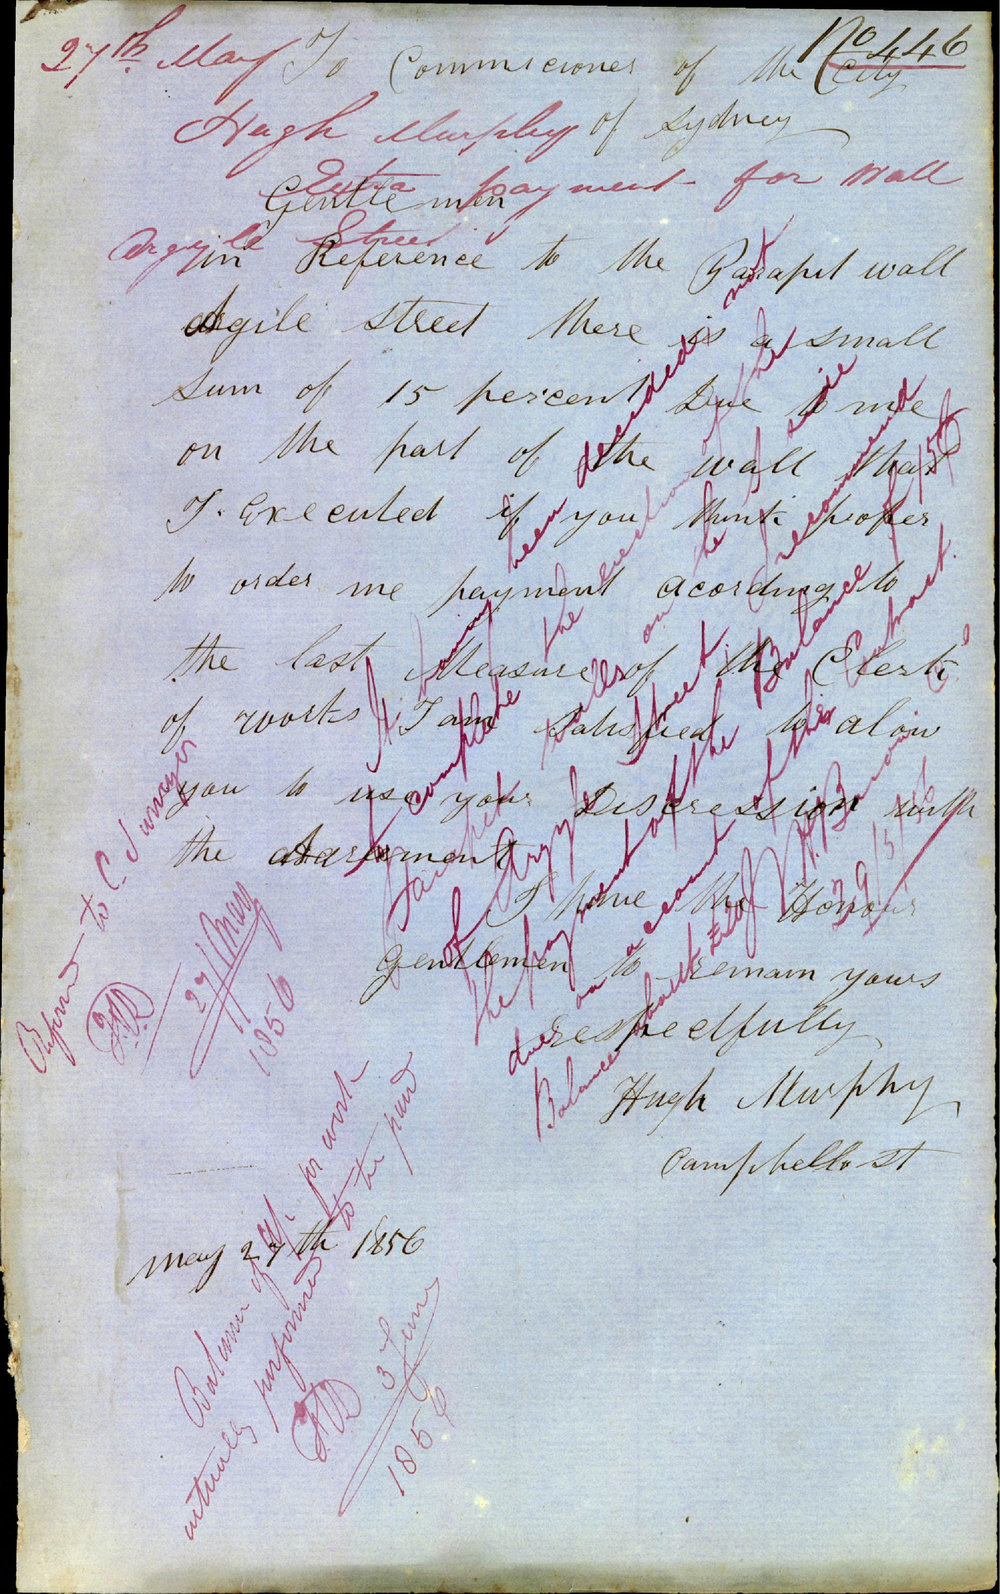 No 446
27th May
Hugh Murphy
Extra payment for Wall
Argyle Street
To Commisciones of the City
of Sydney
Gentlemen
in Reference to the Parapit wall
Argile street there is a small
sum of 15 percent Due to me
on the part of the wall that
I Executed if you think proper
to order me payment acording to
the last Measure of the Clerk
of works I am Satisfied to alow
you to use your Discression with
the
I have the Honour
Gentlemen to remain yours
respectfully
Hugh Murphy
Campbell St
May 27th 1856
Refered to C. Surveyor
27 May
1856
It having been decided not
to complete the erection of the
Parapet walls on the S side
of Argyle Street. I recommend
the payment of the Balance of 15 P
due on account of the Contract.
Balance
29/5/56
Balance of for work
actually performed to be paid
3 June
1856